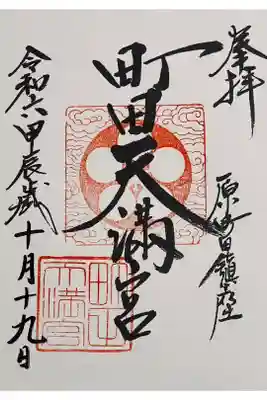 奉拝
原町田鎮座
町田天満宮
令和六甲辰歳十月十九日
町田天満宮